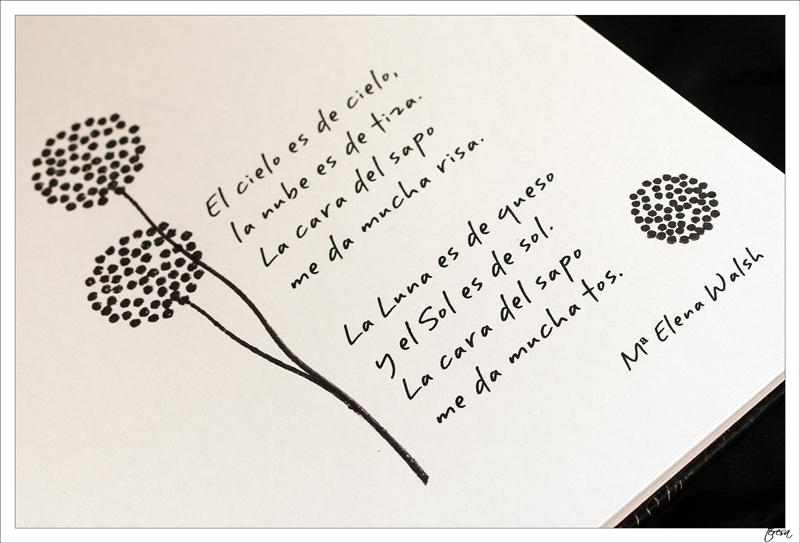 El cielo es de cielo,
la nube es de tiza.
La cara del sapo
me da mucha risa.
La Luna es de queso
y el Sol es de sol.
La cara del sapo
me da mucha tos.
Mª Elena Walsh
teresa